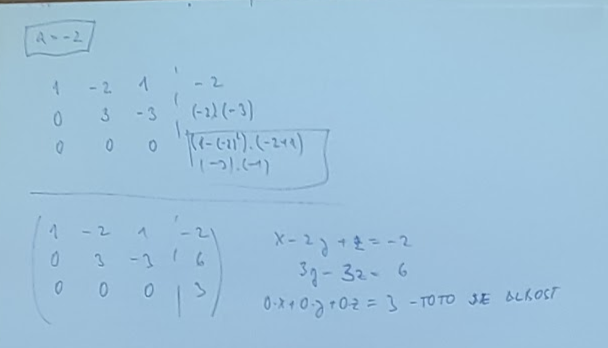 a = -2
1 -2 1 | -2
0 3 -3 | (-2)(-3)
0 0 0 | (1-(-2)²).(-2+1)
(-3).(-1)
1 -2 1 | -2
0 3 -3 | 6
0 0 0 | 3
x - 2y + z = -2
3y - 3z = 6
0·x + 0·y + 0·z = 3 - TOTO JE BLBOST